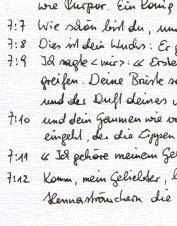 wie Purpur. Ein König
7:7 Wie schön bist du, und
7:8 Dies ist dein Wuchs: Er g
7:9 Ich sagte <mir>: « Erste
greifen. Deine Brüste s
und der Duft deines
7:10 und dein Gaumen wie
eingeht, der die Lippen
7:11 « Ich gehöre meinem Ge
7:12 Komm, mein Geliebter,
Hennasträuchern die